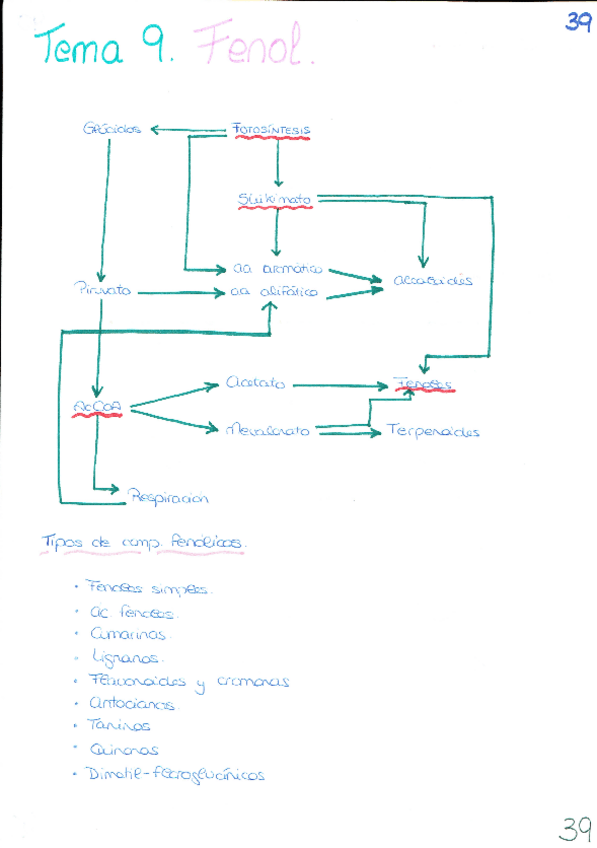 39
Tema 9. Fenol.
Glúcidos FOTOSÍNTESIS
Shikimato
aa aromático
Piruvato aa alifático alcaloides
Acetato Fenoles
AcCoA
Mevalonato Terpenoides
Respiración
Tipos de comp. fenólicos.
· Fenoles simples.
· ac fenoles.
· Cumarinas.
· Lignanos.
· Flavonoides y cromonas
· antocianas.
· Taninos
· Quinonas
· Dimetil-floroglucínicos
39